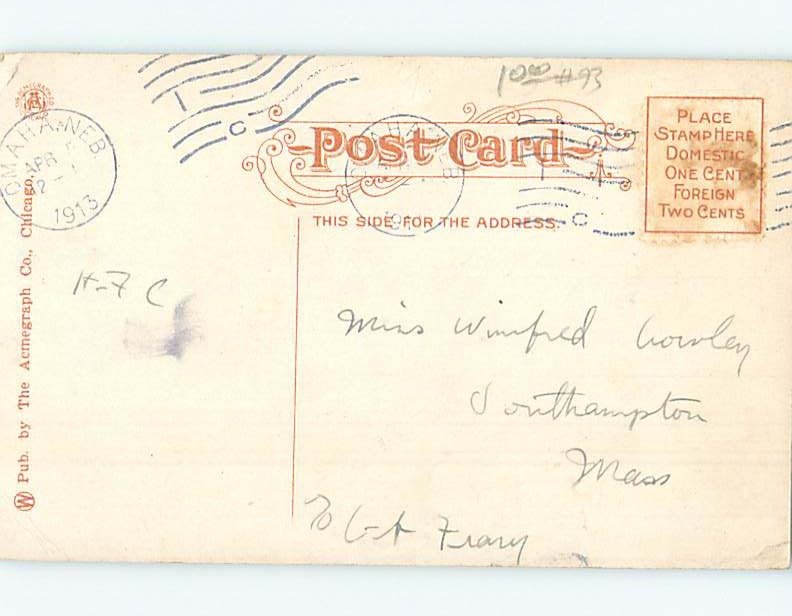 1.00 #93
OMAHA, NEB
APR
2 - 1
1913
OMAHA, NEB
19
Post Card
THIS SIDE FOR THE ADDRESS.
PLACE
STAMP HERE
DOMESTIC
ONE CENT
FOREIGN
TWO CENTS
Pub. by The Acmegraph Co., Chicago.
H-F C
Miss Winifred Cowley
Southampton
Mass
To G A Frary